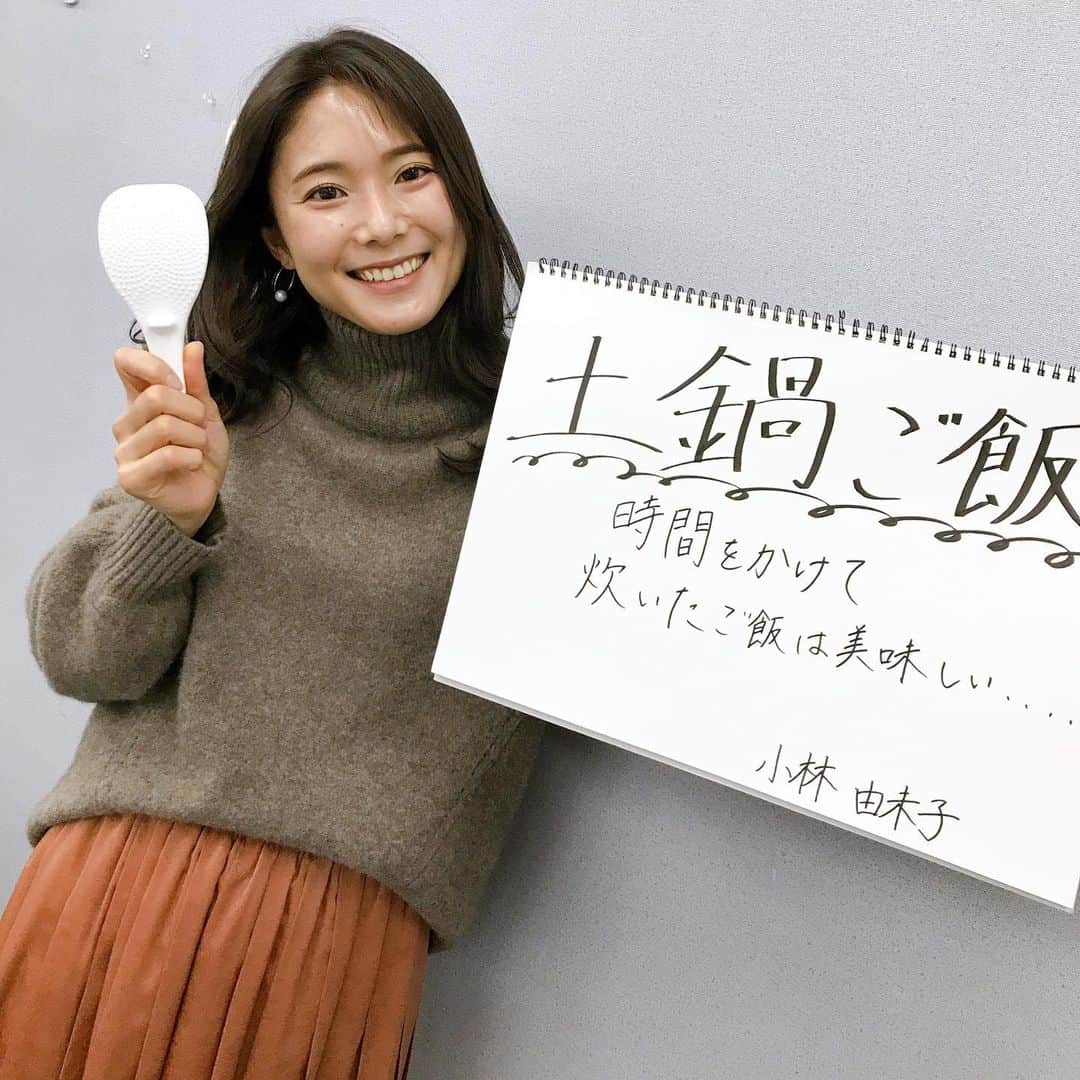 土鍋ご飯
時間をかけて
炊いたご飯は美味しい.....
小林 由未子